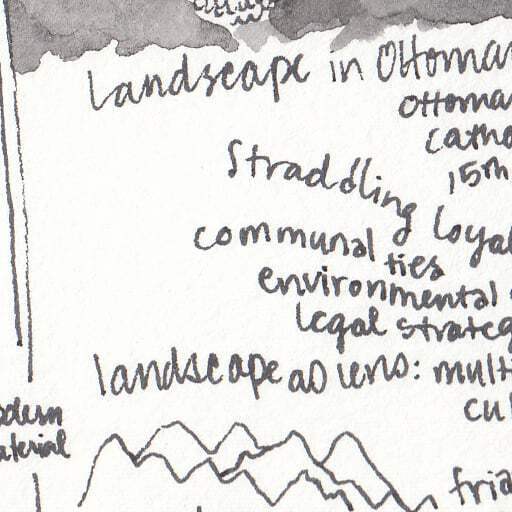 landscape in Ottoma
Ottoma
Catho
15m
Straddling loyal
communal ties
environmental
legal strateg
landscape as lens: multi
cul
odern
aterial
fria